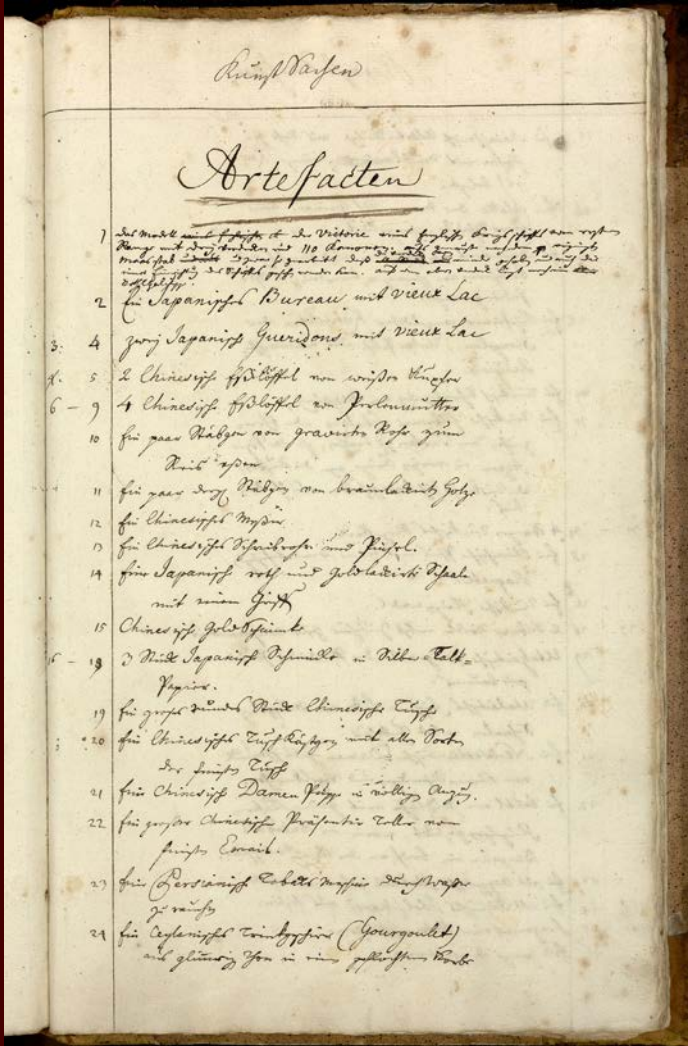 Kunst Sachen
Artefacten
1 das Modell der Victorie eines Englischen vom ersten
Range mit drey Verdecken und 110 Kanonen,
Maasstab daß
des Schiffs kan.
2 Ein Japanisches Bureau mit vieux Lac
3. 4 zwey Japanisch Gueridons, mit vieux Lac
5 2 Chinesische Eßlöffel von weißen Kupfer
6 – 9 4 Chinesische Eßlöffel von Perlenmutter
10 Ein paar Stäbgen von gravirtes Rohr zum
Reis eßen
11 Ein paar Stäbgen von braunlackirt Holz
12 Ein Chinesisches Meßer
13 Ein Chinesisches Schreibrohr und Pinsel.
14 Eine Japanisch roth und Goldlackirte Schaale
mit einem Griff
15 Chinesische Gold Schminke
16 – 18 3 Stück Japanisch Schminke in Silber Talk-
Papier.
19 Ein großes rundes Stück Chinesische Tusche
20 Ein Chinesisches Tusch Kästgen mit allen Sorten
der feinsten Tusch
21 Eine Chinesisch Damen Puppe in völligen Anzug.
22 Ein großer Chinesische Präsentir Teller vom
feinsten Email.
23 Eine Persianisch Tobaks Maschine durch Waßer
zu rauchen
24 Ein Ceylanisches Trinkgeschirr (Gourgoulet)
aus Thon in einem geflochtenen Korbe